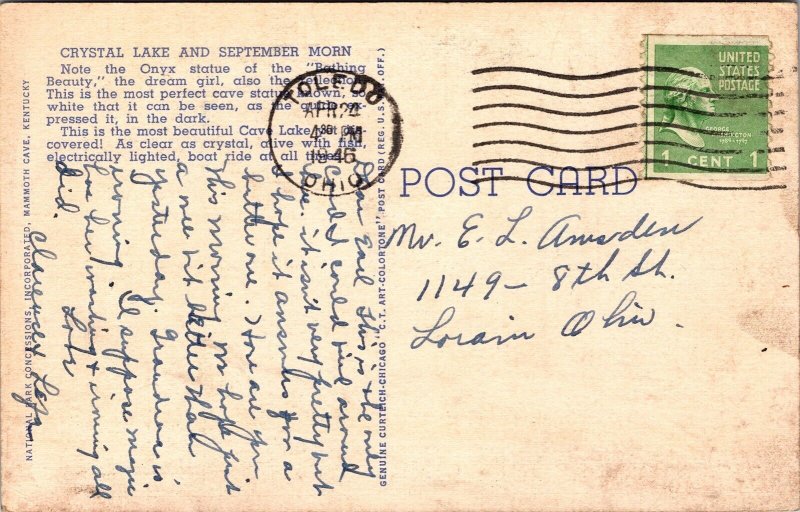 CRYSTAL LAKE AND SEPTEMBER MORN
Note the Onyx statue of the "Bathing
Beauty," the dream girl, also the reflection.
This is the most perfect cave statue known, so
white that it can be seen, as the guide ex-
pressed it, in the dark.
This is the most beautiful Cave Lake yet dis-
covered! As clear as crystal, alive with fish,
electrically lighted, boat ride at all times.
NATIONAL PARK CONCESSIONS, INCORPORATED, MAMMOTH CAVE, KENTUCKY
GENUINE CURTEICH-CHICAGO "C.T. ART-COLORTONE" POST CARD (REG. U.S. PAT. OFF.)
TOLEDO
APR 24
4 30 PM
1946
OHIO
UNITED
STATES
POSTAGE
GEORGE
WASHINGTON
1789-1797
1 CENT 1
POST CARD
Mr. E. L. Amsden
1149 - 8th St.
Lorain Ohio.
Dear Earl This is the only
card I could find around
here. it isn't very pretty but
I hope it answers for a
better one. How are you
this morning, we hope just
a wee bit better than
yesterday. Grandma is
ironing. I suppose
has been washing & ironing all
did. Love
Clarence &